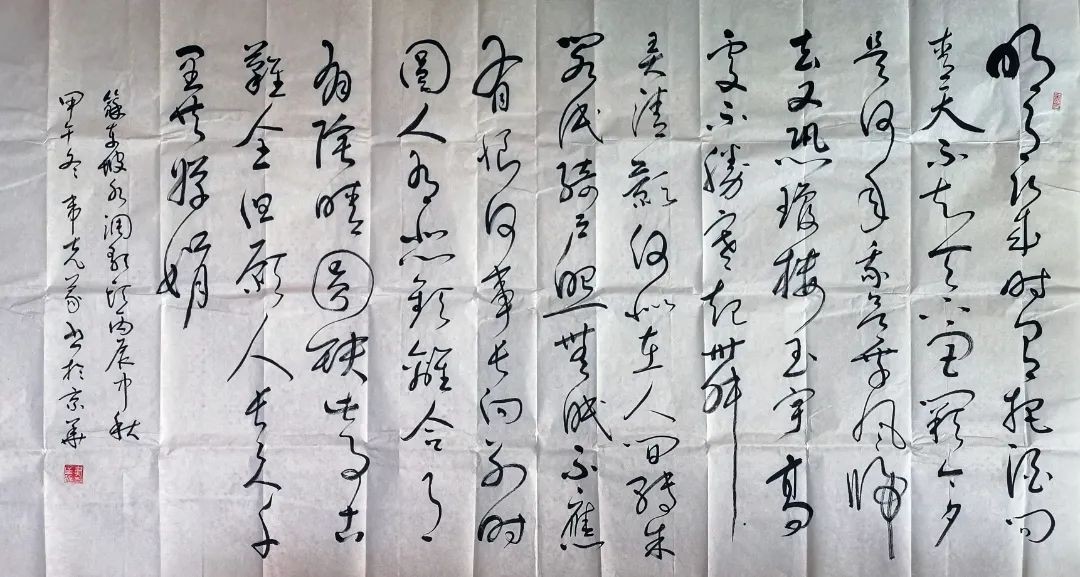 明月幾時有把酒問
青天不知天上宮闕今夕
是何年我欲乘風歸
去又恐瓊樓玉宇高
處不勝寒起舞
弄清影何似在人間轉朱
閣低綺戶照無眠不應
有恨何事長向別時
圓人有悲歡離合月
有陰晴圓缺此事古
難全但願人長久千
里共嬋娟
蘇東坡水調歌頭丙辰中秋
甲午冬韦克義書於京華